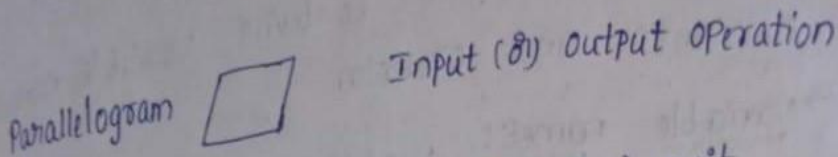 Parallelogram Input (or) output operation